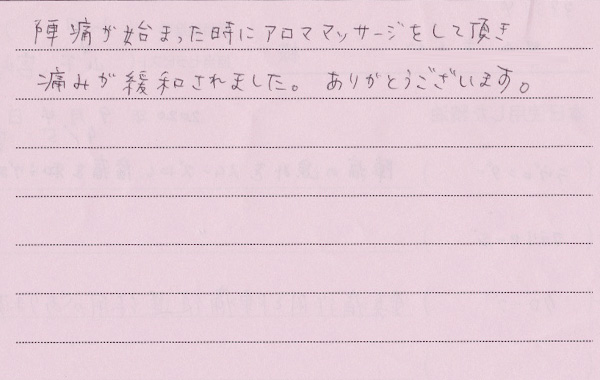 陣痛が始まった時にアロママッサージをして頂き
痛みが緩和されました。 ありがとうございます。